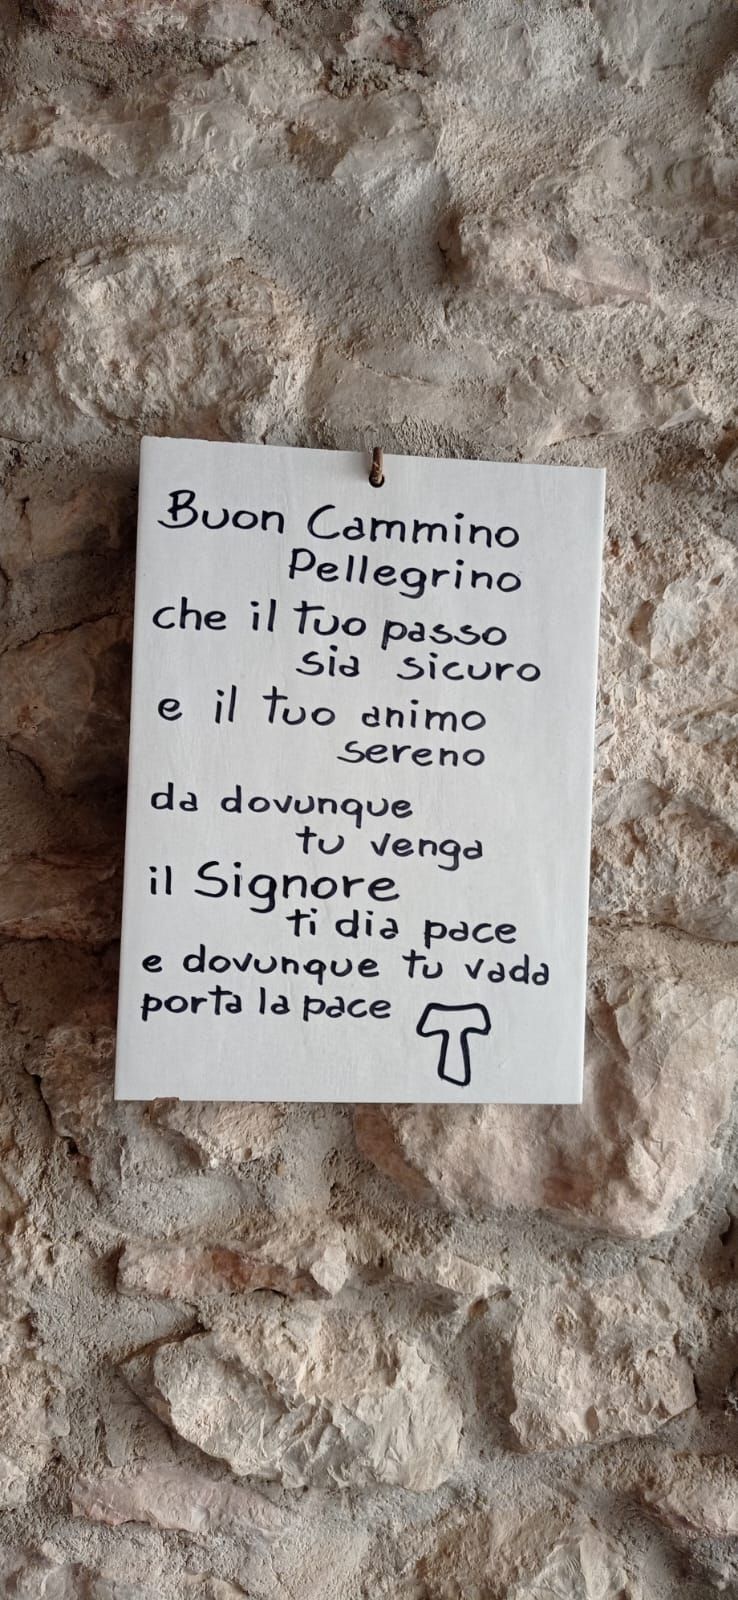 Buon Cammino
Pellegrino
che il tuo passo
sia sicuro
e il tuo animo
sereno
da dovunque
tu venga
il Signore
ti dia pace
e dovunque tu vada
porta la pace